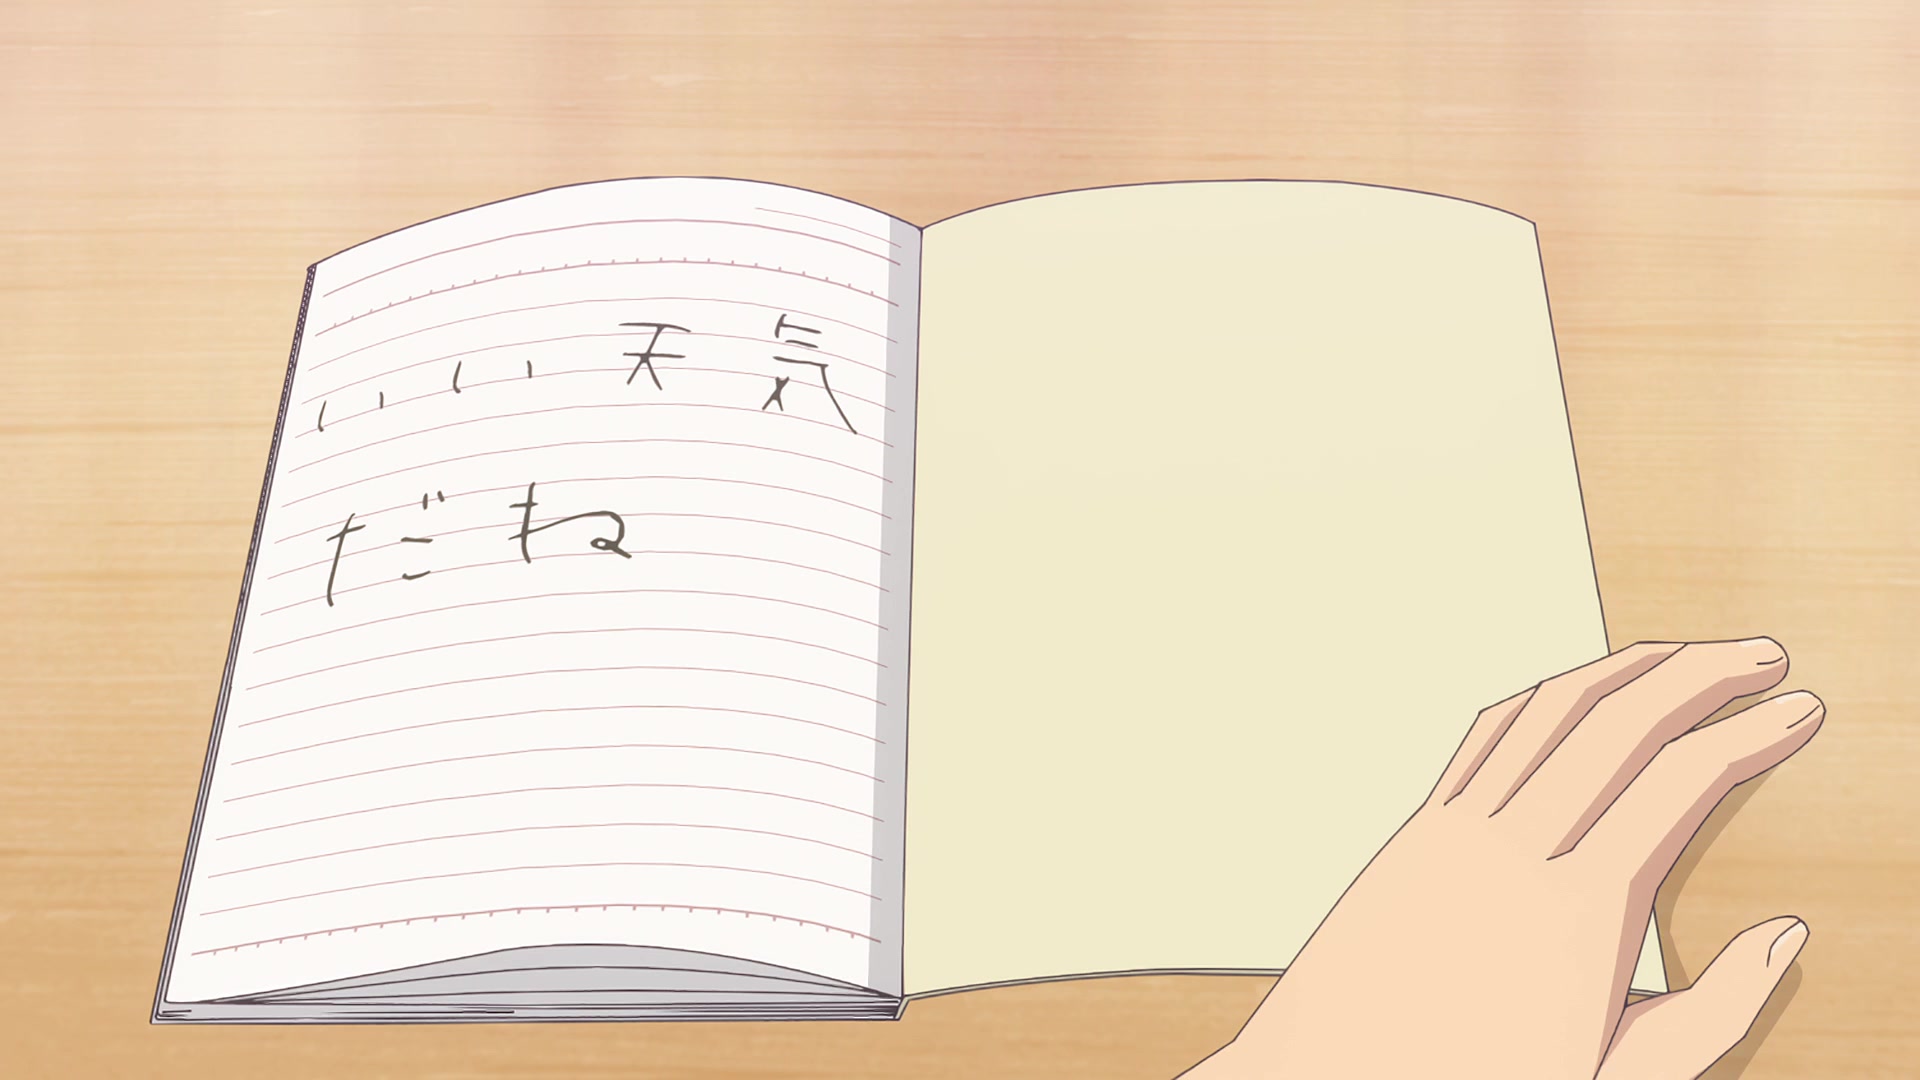 いい天気
だね